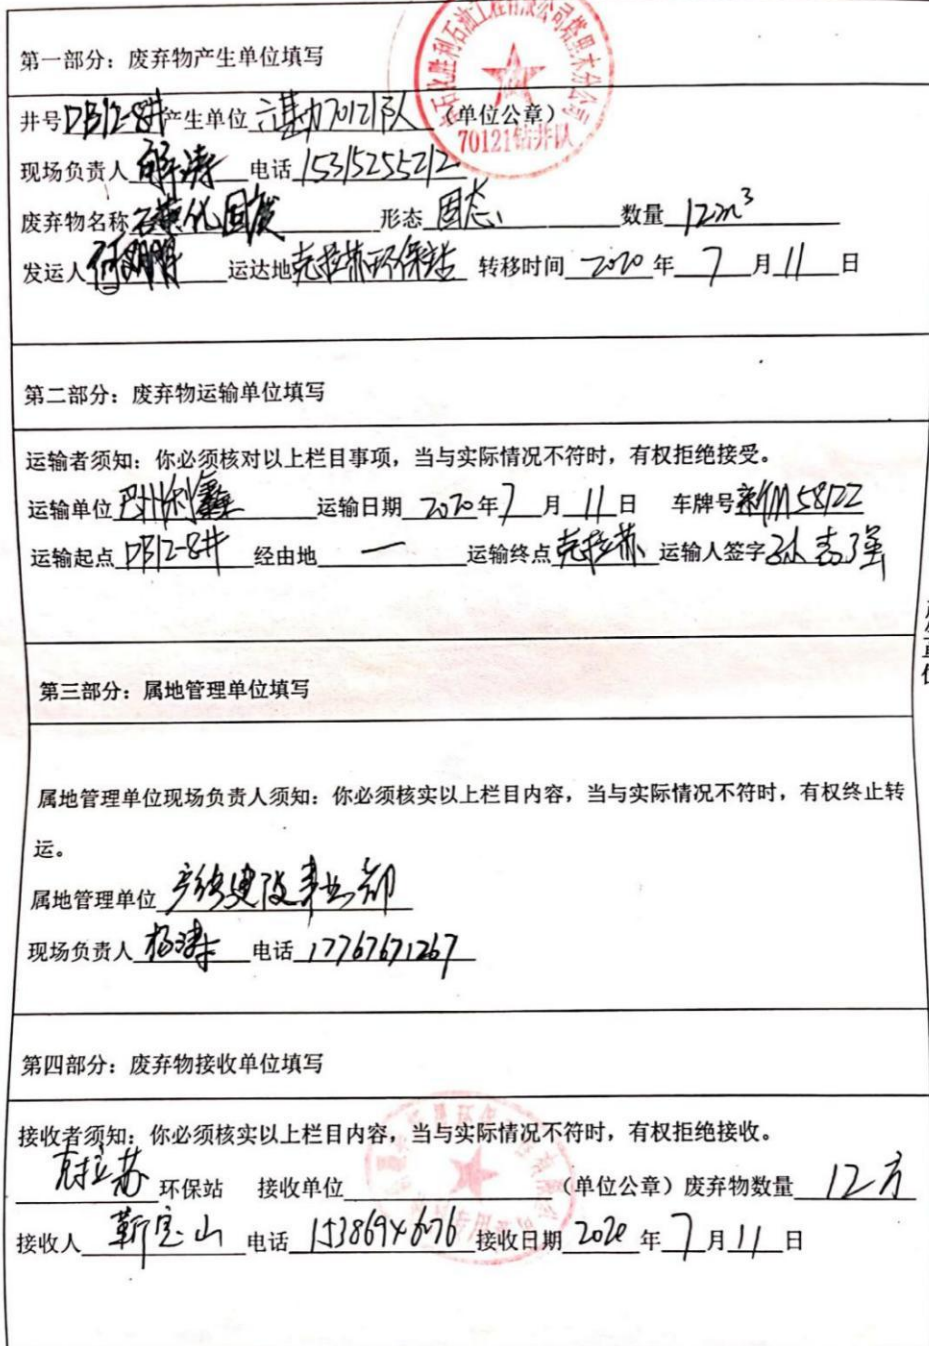 石化胜利石油工程有限公司塔里木分公司
70121钻井队
第一部分：废弃物产生单位填写
井号DB12-8井产生单位 六勘70121队 （单位公章）
现场负责人 解涛 电话 15315255212
废弃物名称 磺化固废 形态 固态 数量 12m³
发运人 运达地 克拉苏环保站 转移时间 2020 年 7 月 11 日
第二部分：废弃物运输单位填写
运输者须知：你必须核对以上栏目事项，当与实际情况不符时，有权拒绝接受。
运输单位 巴州利鑫 运输日期 2020 年 7 月 11 日 车牌号 新M58122
运输起点 DB12-8井 经由地 — 运输终点 克拉苏 运输人签字 孙志强
第三部分：属地管理单位填写
属地管理单位现场负责人须知：你必须核实以上栏目内容，当与实际情况不符时，有权终止转
运。
属地管理单位 产能建设事业部
现场负责人 杨涛 电话 17767671267
第四部分：废弃物接收单位填写
接收者须知：你必须核实以上栏目内容，当与实际情况不符时，有权拒绝接收。
克拉苏 环保站 接收单位 （单位公章）废弃物数量 12方
接收人 靳宝山 电话 15386946076 接收日期 2020 年 7 月 11 日